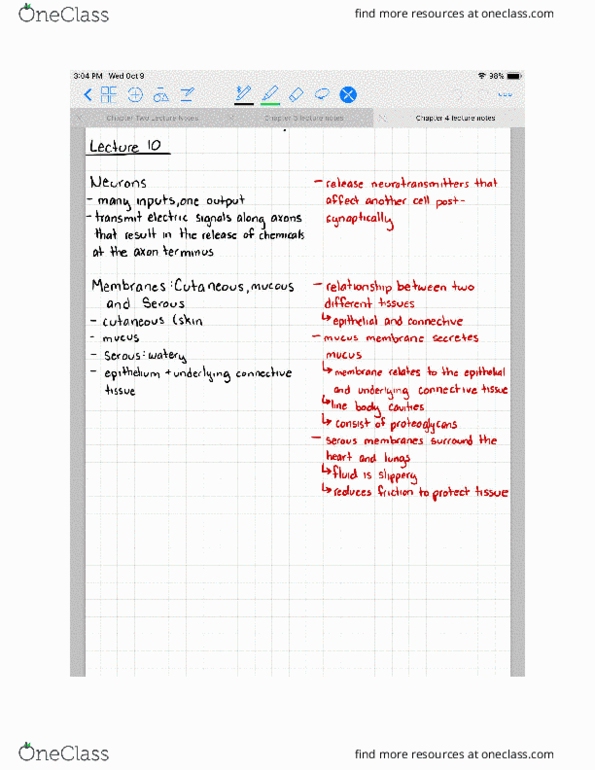 OneClass
find more resources at oneclass.com
3:04 PM Wed Oct 9
98%
Chapter Two Lecture Notes
Chapter 3 lecture notes
Chapter 4 lecture notes
Lecture 10
Neurons
- many inputs, one output
- transmit electric signals along axons
that result in the release of chemicals
at the axon terminus
- release neurotransmitters that
affect another cell post-
synaptically
Membranes: Cutaneous, mucous
and Serous
- cutaneous (skin
- mucus
- Serous: watery
- epithelium + underlying connective
tissue
- relationship between two
different tissues
↳ epithelial and connective
- mucus membrane secretes
mucus
↳ membrane relates to the epithelial
and underlying connective tissue
↳ line body cavities
↳ consist of proteoglycans
- serous membranes surround the
heart and lungs
↳ fluid is slippery
↳ reduces friction to protect tissue
OneClass
find more resources at oneclass.com